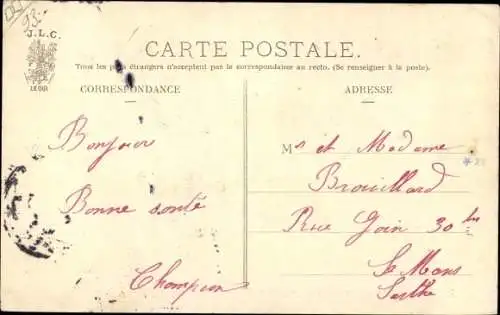 93.
J.L.C.
CARTE POSTALE.
Tous les pays étrangers n'acceptent pas la correspondance au recto. (Se renseigner à la poste).
CORRESPONDANCE
ADRESSE
Bonjour
Bonne santé
Champion
Mr et Madame
Brouillard
Rue Goin 30 bis
Le Mans
Sarthe